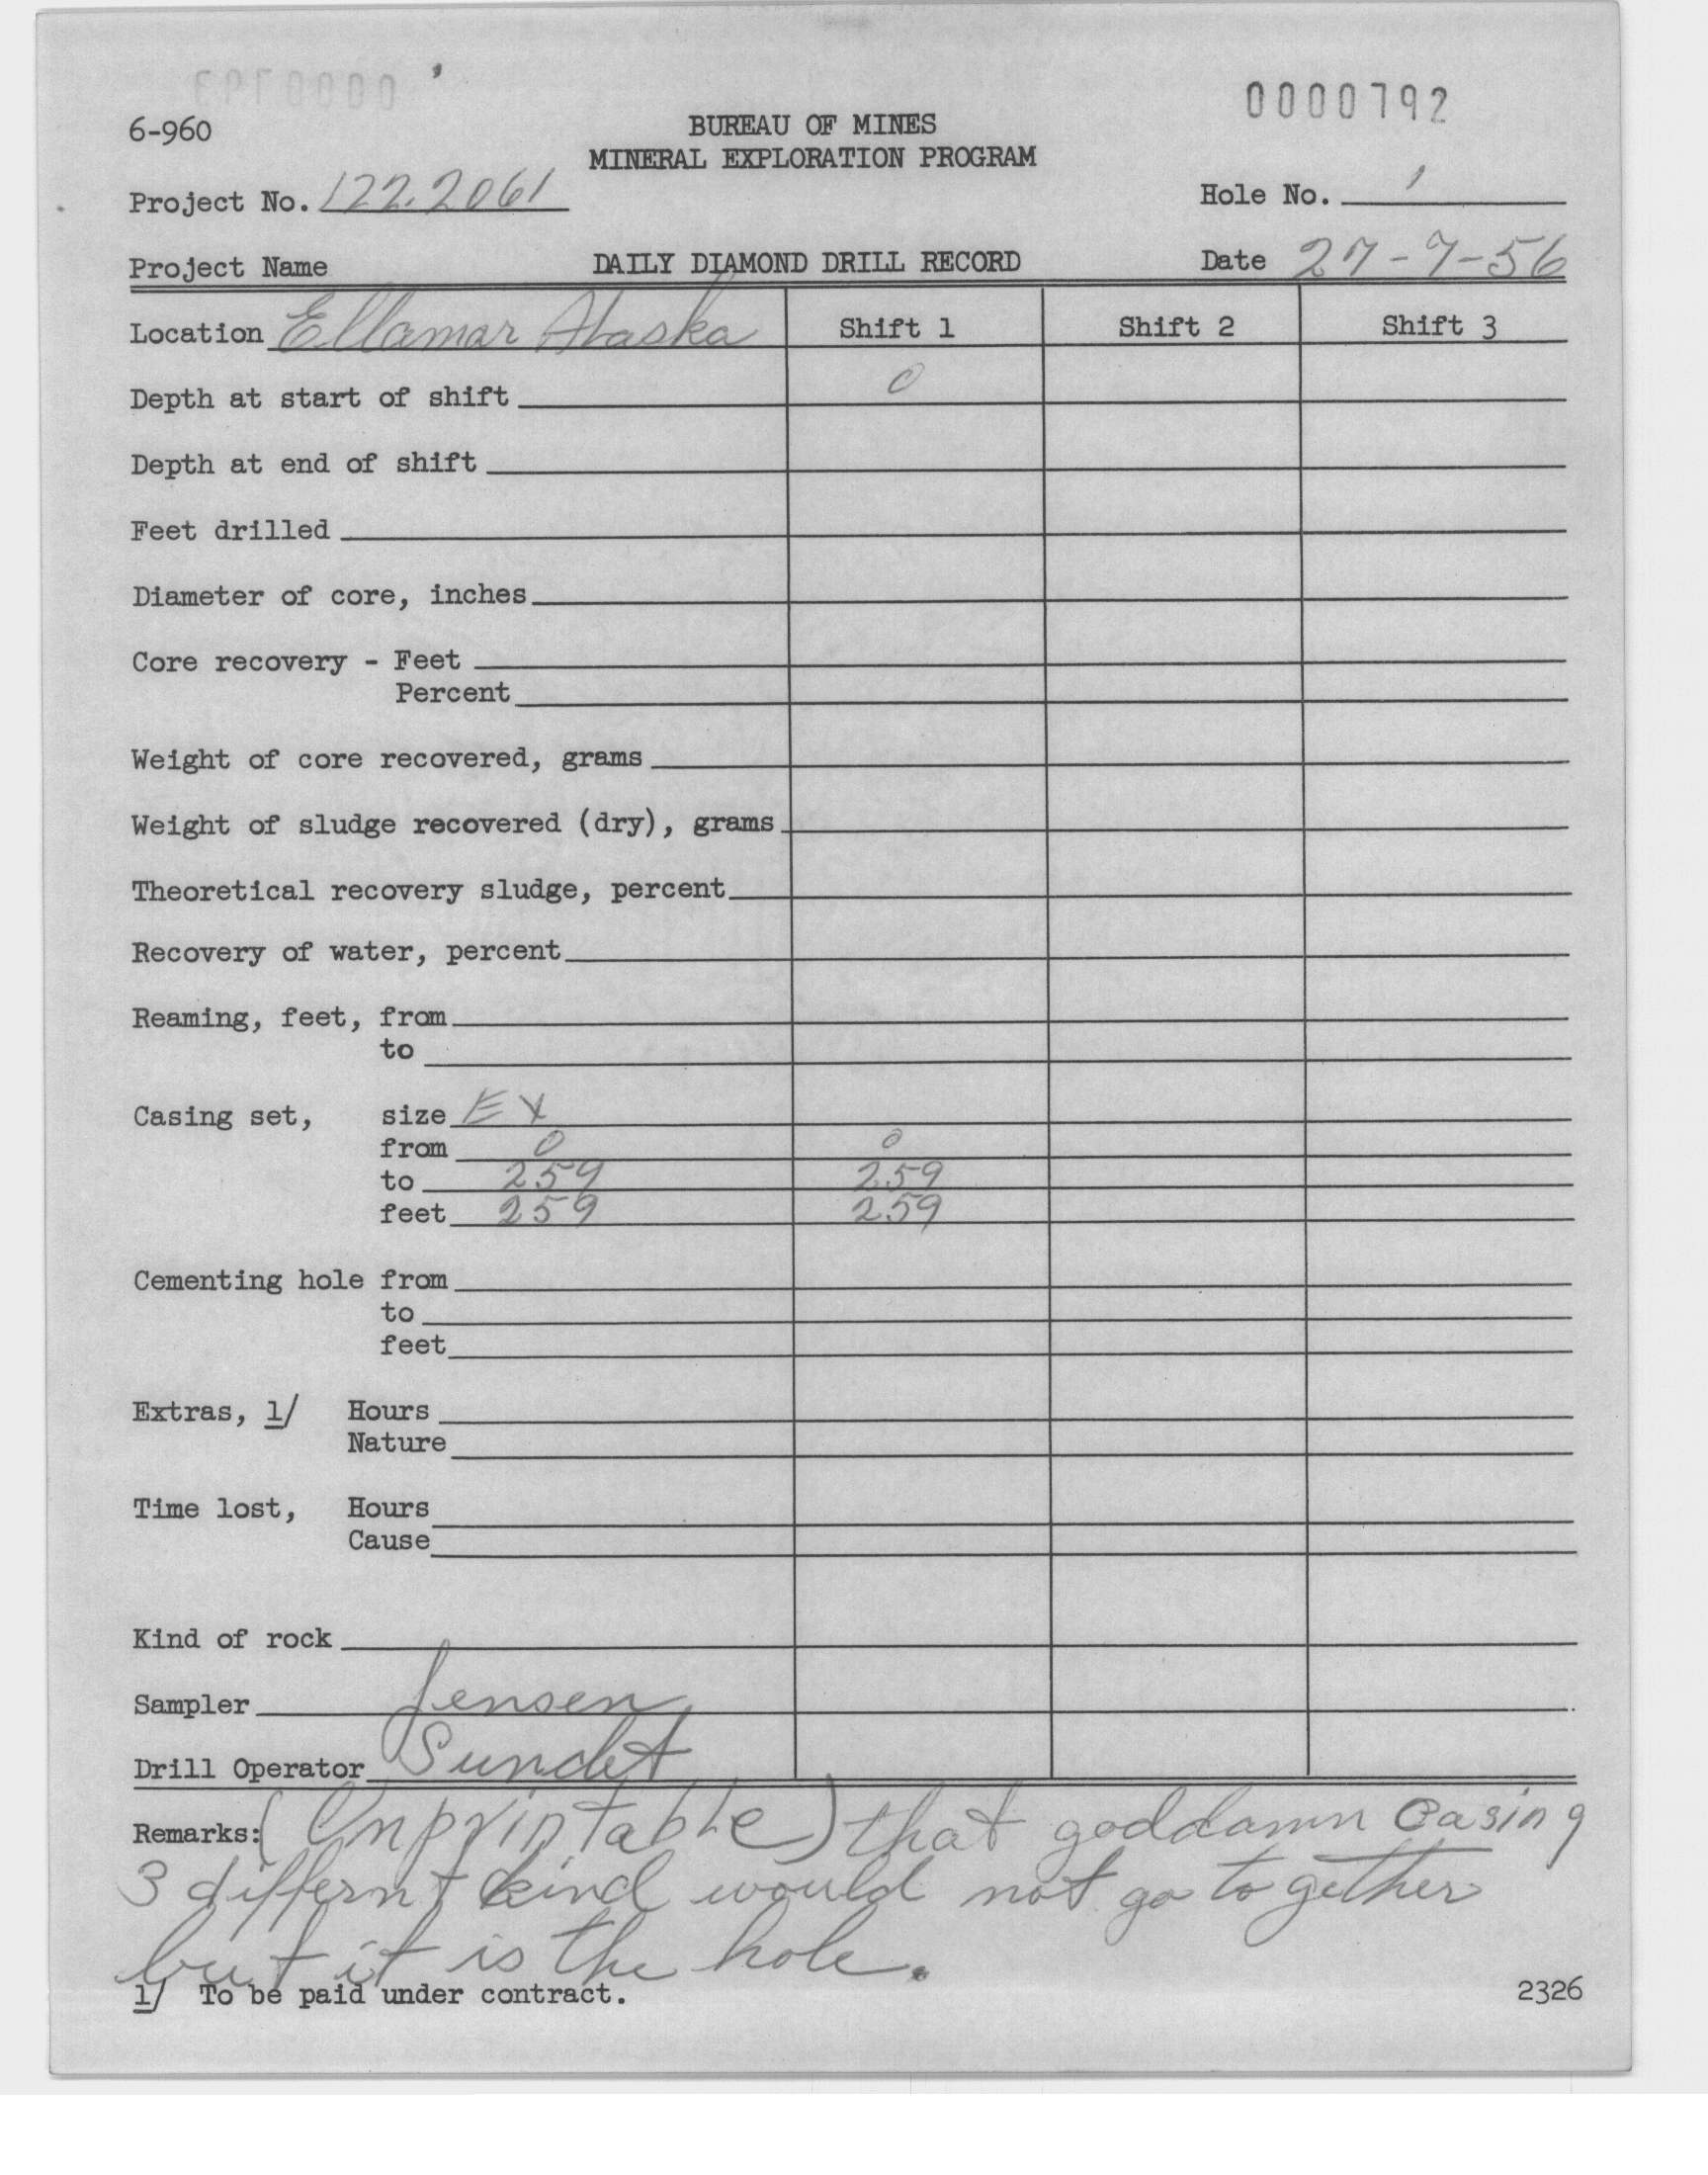 0000792
6-960
BUREAU OF MINES
MINERAL EXPLORATION PROGRAM
Project No. 122.2061
Hole No. 1
Project Name
DAILY DIAMOND DRILL RECORD
Date 27-7-56
Location Ellamar Alaska Shift 1 Shift 2 Shift 3
Depth at start of shift 0
Depth at end of shift
Feet drilled
Diameter of core, inches
Core recovery - Feet
Percent
Weight of core recovered, grams
Weight of sludge recovered (dry), grams
Theoretical recovery sludge, percent
Recovery of water, percent
Reaming, feet, from
to
Casing set, size EX
from 0 0
to 259 259
feet 259 259
Cementing hole from
to
feet
Extras, 1/ Hours
Nature
Time lost, Hours
Cause
Kind of rock
Sampler Jensen
Drill Operator Sundt
Remarks: (Unprintable) that goddamn casing
3 differnt kind would not go together
but it is the hole.
1/ To be paid under contract.
2326